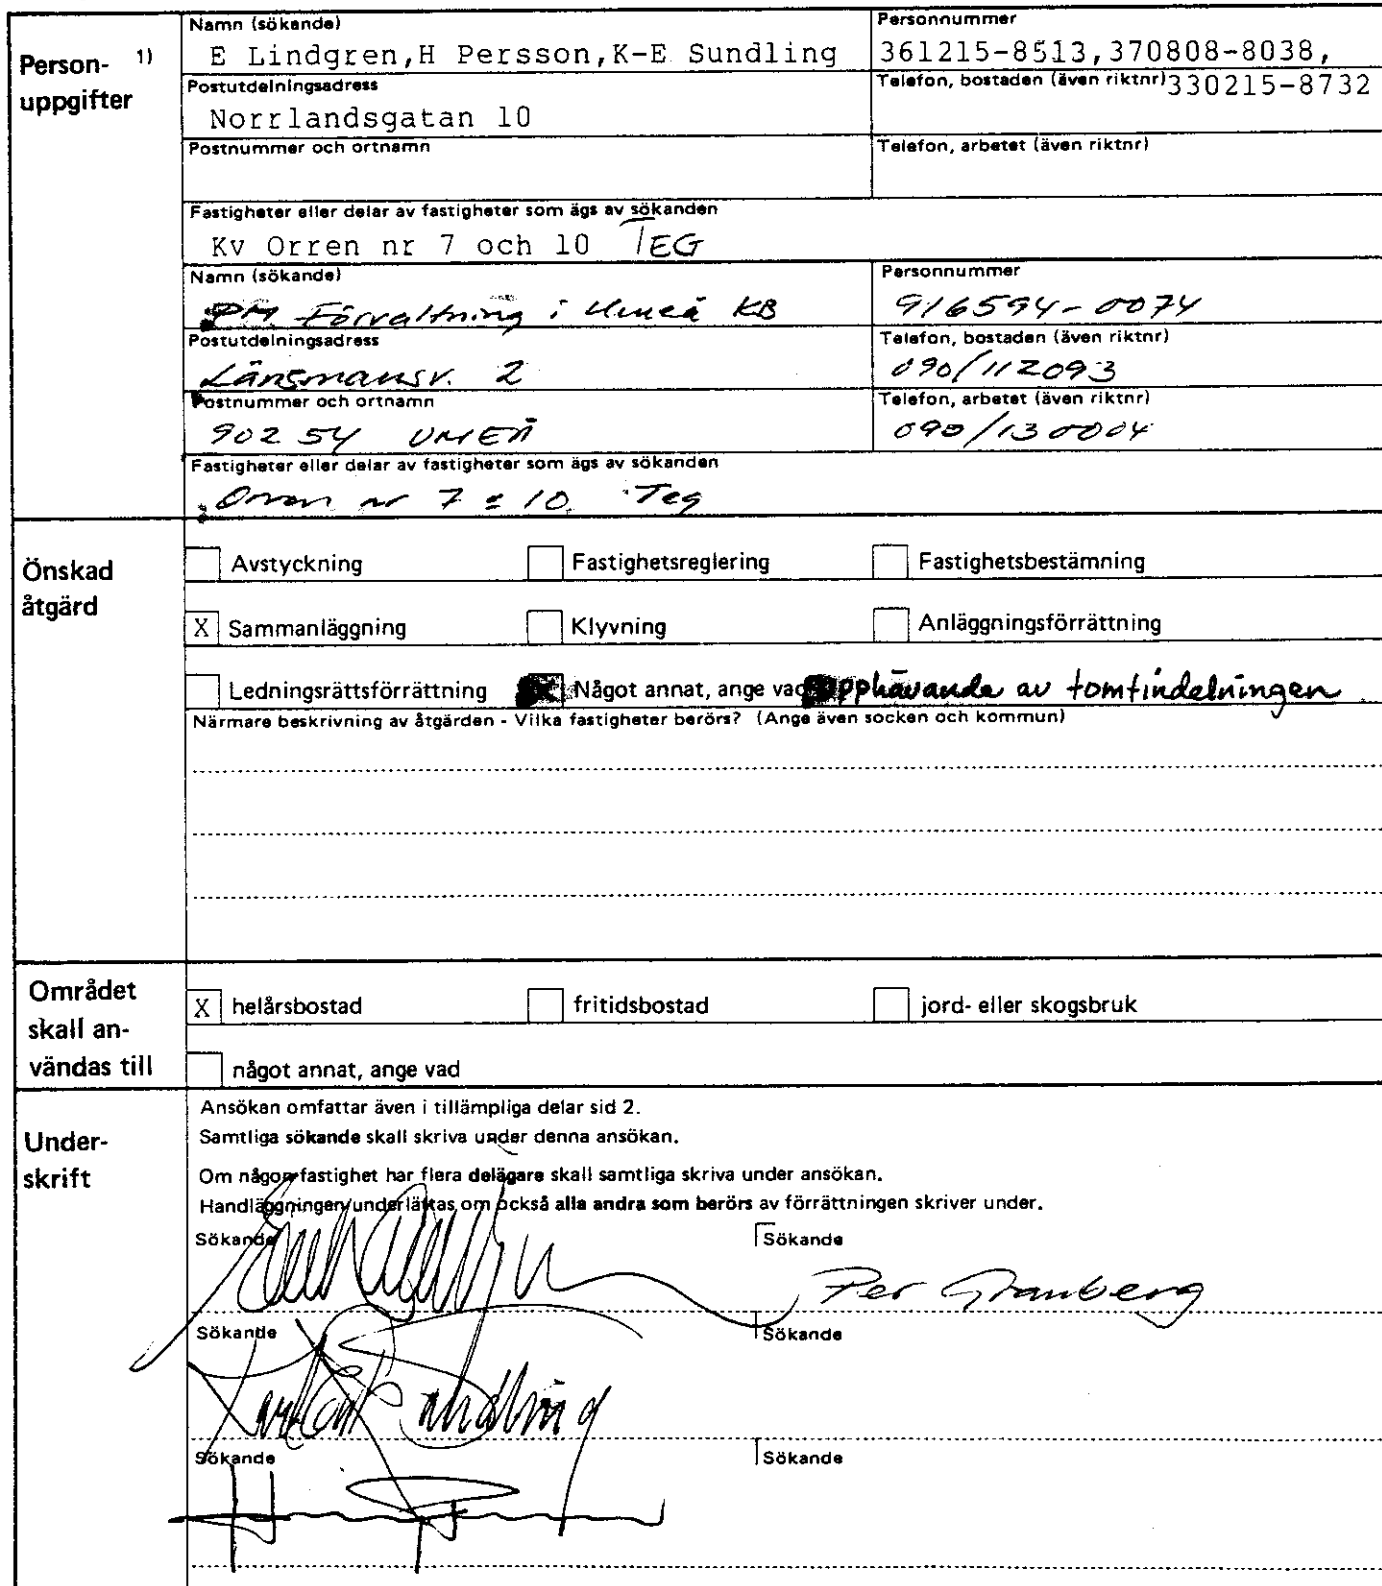 Person- 1)
uppgifter
Namn (sökande)
E Lindgren,H Persson,K-E Sundling
Personnummer
361215-8513,370808-8038,
Postutdelningsadress
Norrlandsgatan 10
Telefon, bostaden (även riktnr) 330215-8732
Postnummer och ortnamn
Telefon, arbetet (även riktnr)
Fastigheter eller delar av fastigheter som ägs av sökanden
Kv Orren nr 7 och 10 TEG
Namn (sökande)
PM Förvaltning i Umeå KB
Personnummer
916594-0074
Postutdelningsadress
Länsmansv. 2
Telefon, bostaden (även riktnr)
090/112093
Postnummer och ortnamn
902 54 UMEÅ
Telefon, arbetet (även riktnr)
090/130004
Fastigheter eller delar av fastigheter som ägs av sökanden
Orren nr 7 10. Teg
Önskad
åtgärd
Avstyckning Fastighetsreglering Fastighetsbestämning
X Sammanläggning Klyvning Anläggningsförrättning
Ledningsrättsförrättning X Något annat, ange vad upphävande av tomtindelningen
Närmare beskrivning av åtgärden - Vilka fastigheter berörs? (Ange även socken och kommun)
Området
skall an-
vändas till
X helårsbostad fritidsbostad jord- eller skogsbruk
något annat, ange vad
Under-
skrift
Ansökan omfattar även i tillämpliga delar sid 2.
Samtliga sökande skall skriva under denna ansökan.
Om någon fastighet har flera delägare skall samtliga skriva under ansökan.
Handläggningen underlättas om också alla andra som berörs av förrättningen skriver under.
Sökande Sökande
Per Granberg
Sökande Sökande
Sundling
Sökande Sökande